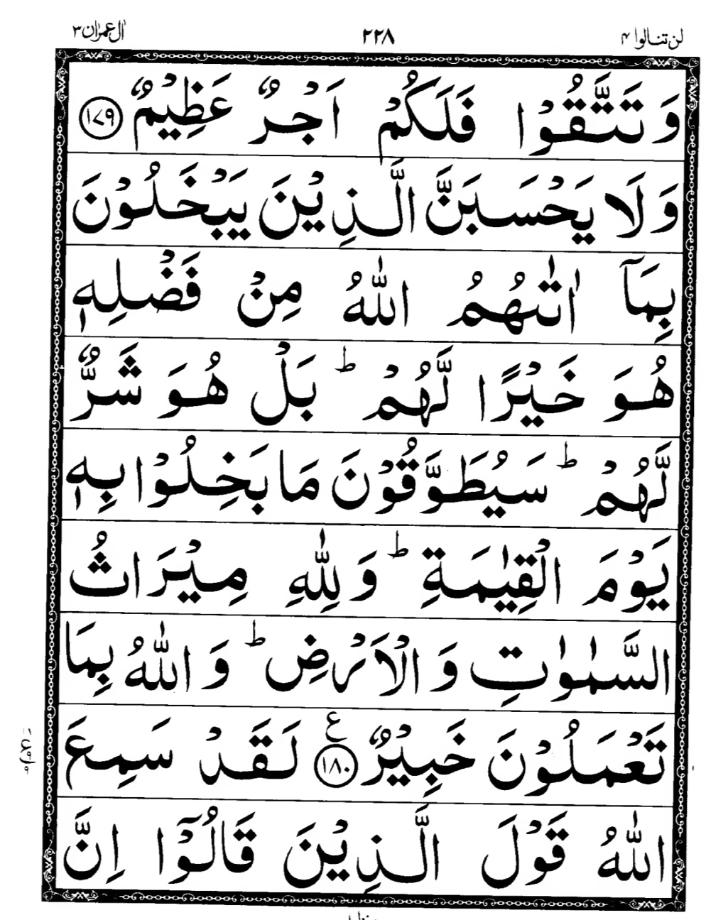 لن تنالوا ۴ ۲۲۸ اٰل عمرٰن ۳
وَ تَتَّقُوْا فَلَكُمْ اَجْرٌ عَظِيْمٌ ﴿۱۷۹﴾
وَلَا يَحْسَبَنَّ الَّذِيْنَ يَبْخَلُوْنَ
بِمَاۤ اٰتٰىهُمُ اللّٰهُ مِنْ فَضْلِهٖ
هُوَ خَيْرًا لَّهُمْ ؕ بَلْ هُوَ شَرٌّ
لَّهُمْ ؕ سَيُطَوَّقُوْنَ مَا بَخِلُوْا بِهٖ
يَوْمَ الْقِيٰمَةِ ؕ وَ لِلّٰهِ مِيْرَاثُ
السَّمٰوٰتِ وَ الْاَرْضِ ؕ وَ اللّٰهُ بِمَا
تَعْمَلُوْنَ خَبِيْرٌ ﴿۱۸۰﴾ ع لَقَدْ سَمِعَ
اللّٰهُ قَوْلَ الَّذِيْنَ قَالُوْۤا اِنَّ